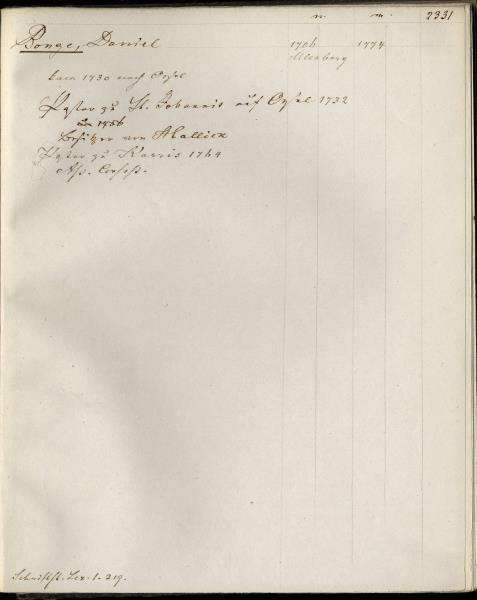 n. m. 2331
Bonge, Daniel 1706 1774
Altenburg
kam 1730 nach Oesel
Pastor zu St. Johannis auf Oesel 1732
um 1756
Besitzer von Hallick
Pastor zu Karris 1764
Ass. Consist.
Schriftst. Lex. 1. 219.